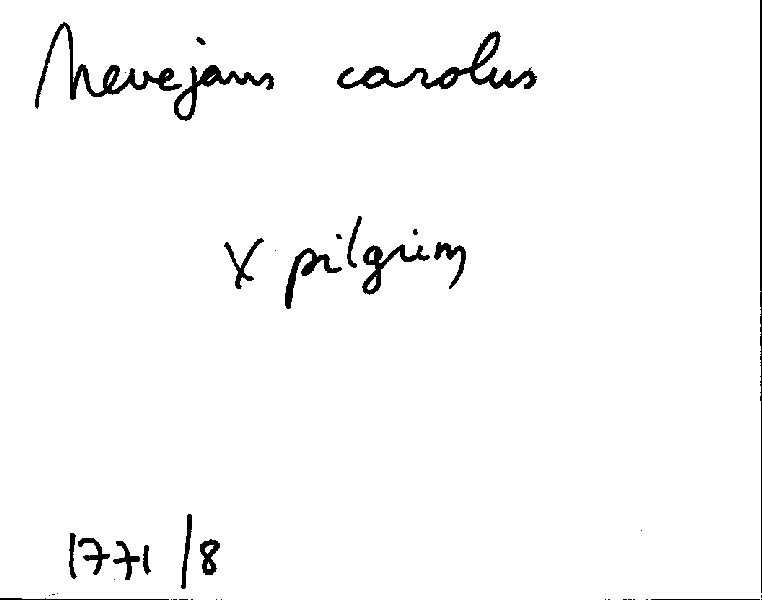 Nevejans carolus
X pilgrim
1771/8